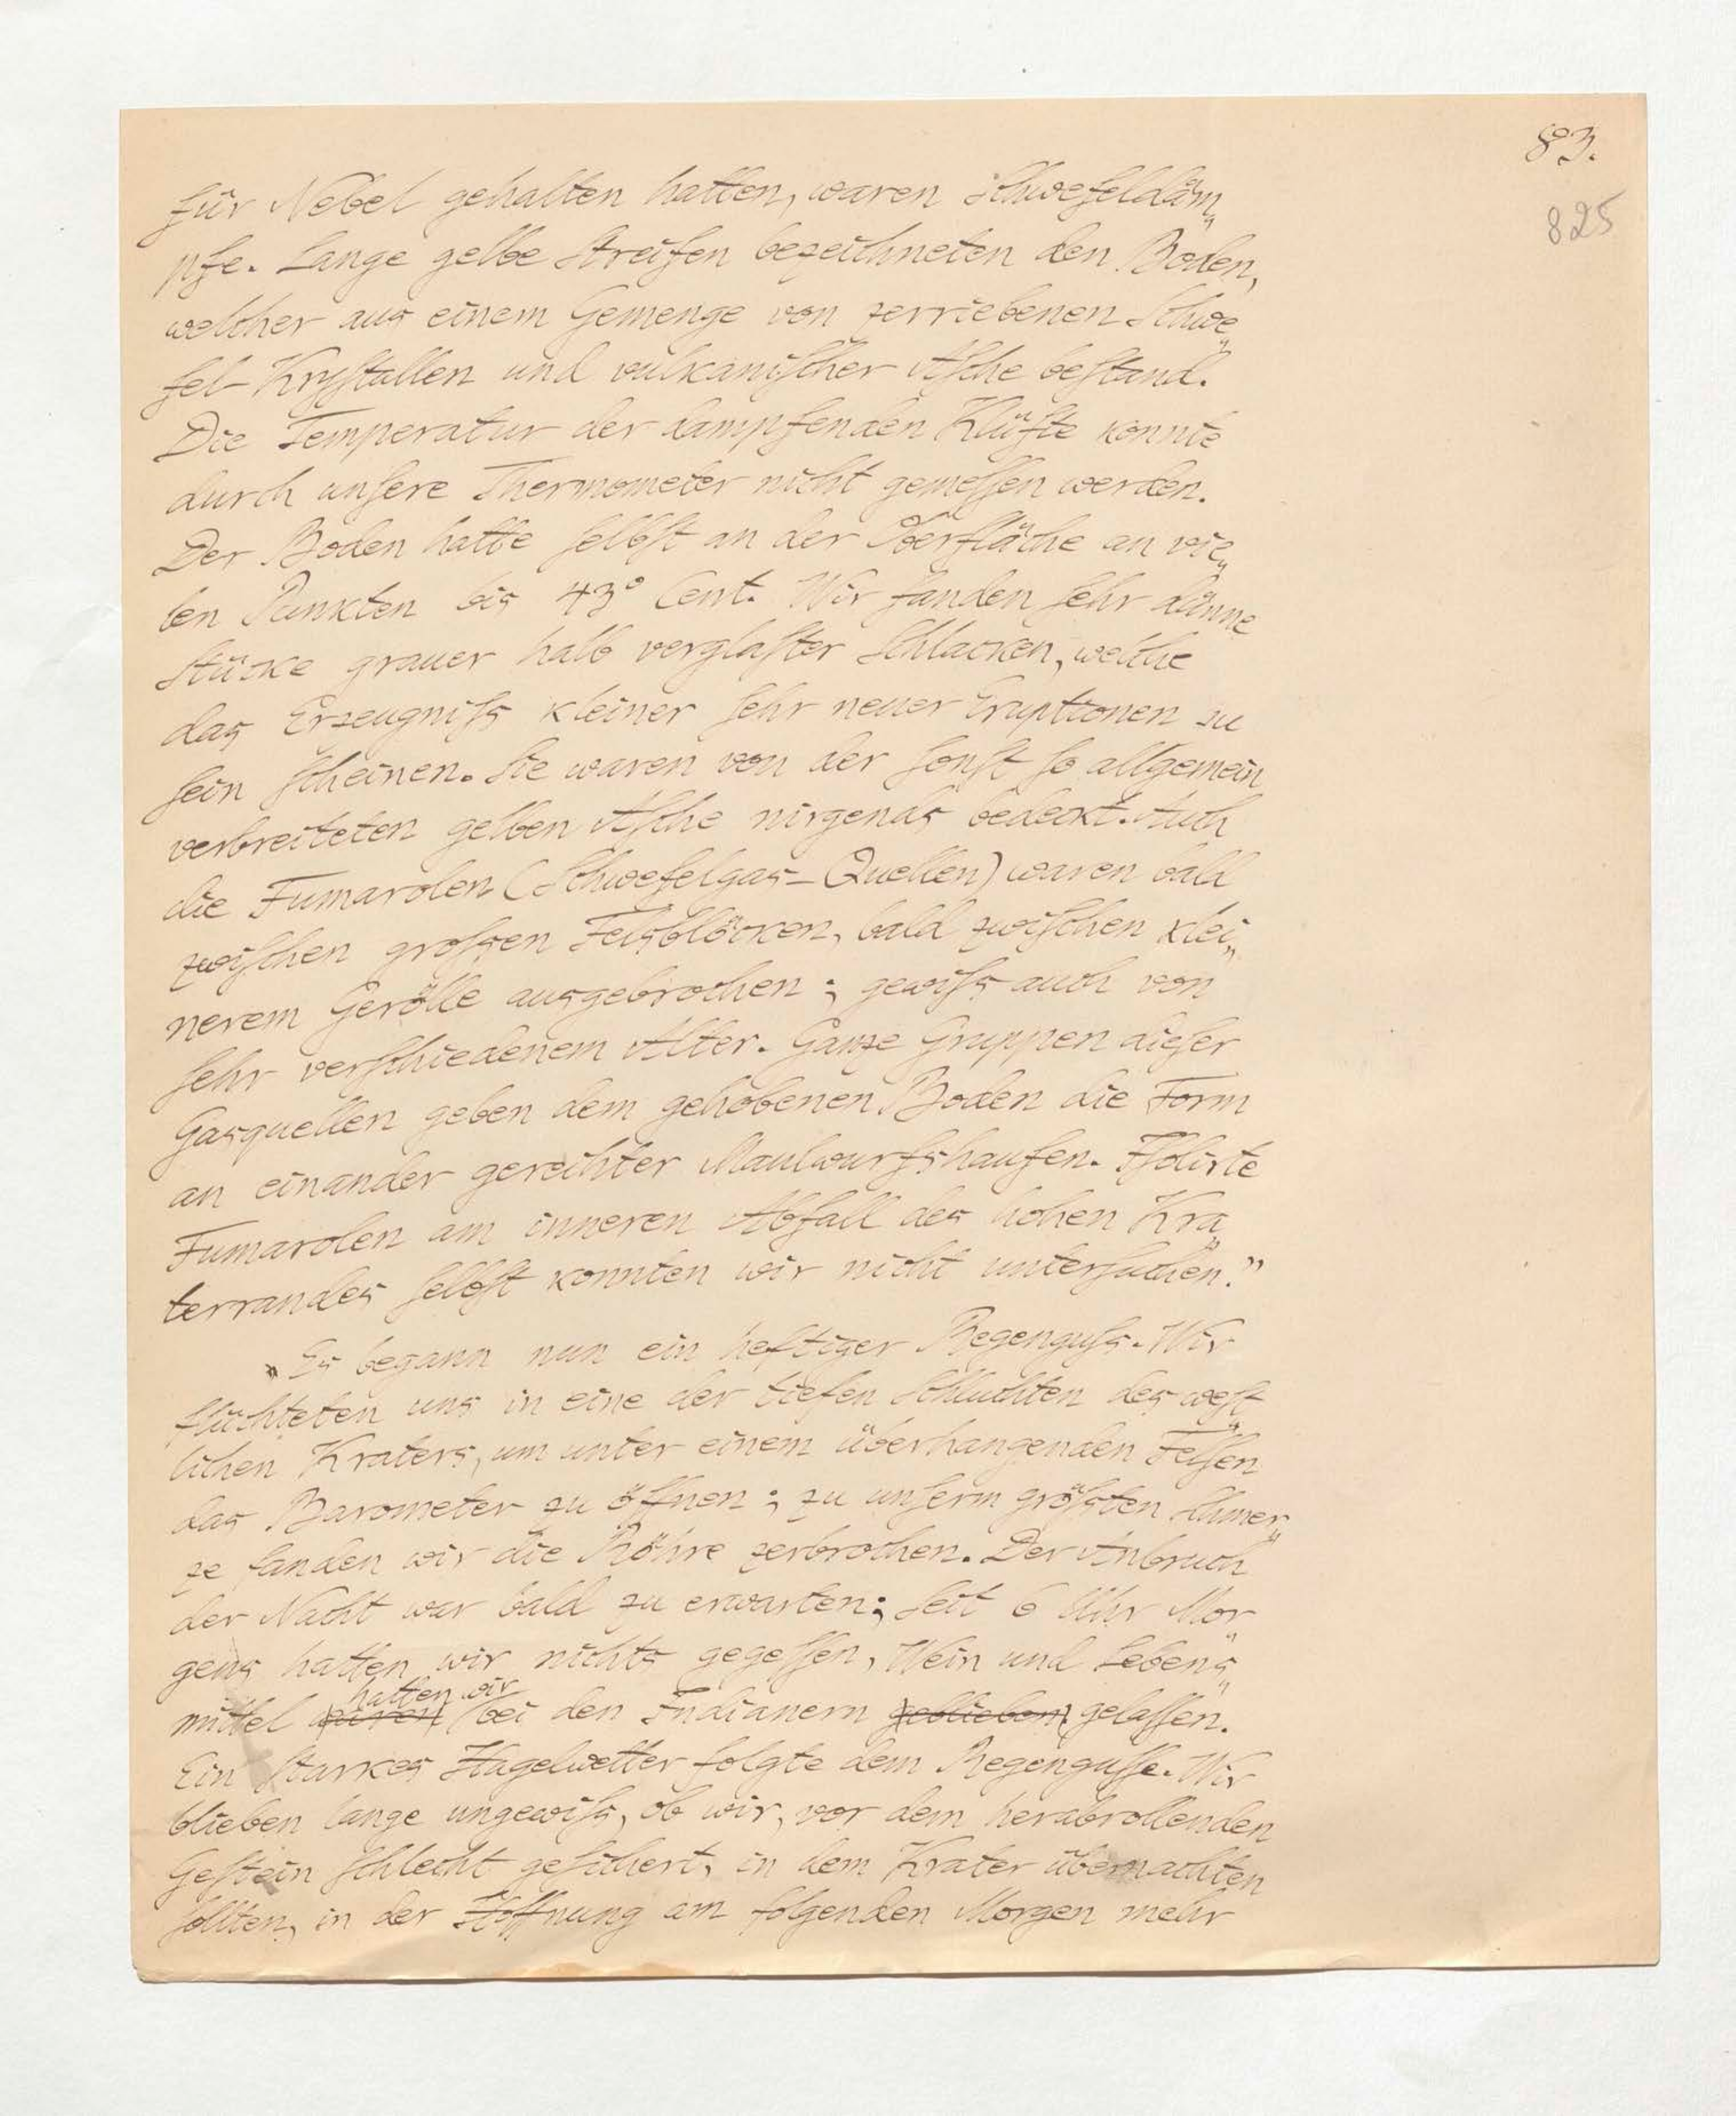 83.
825
für Nebel gehalten hatten, waren Schwefeldäm„
pfe. Lange gelbe Streifen bezeichneten den Boden,
welcher aus einem Gemenge von zerriebenen Schwe„
fel-Krystallen und vulkanischer Asche bestand.
Die Temperatur der dampfenden Klüfte konnte
durch unsere Thermometer nicht gemessen werden.
Der Boden hatte selbst an der Oberfläche an vie„
len Punkten bis 43° Cent. Wir fanden sehr dünne
Stücke grauer halb verglaster Schlacken, welche
das Erzeugniss kleiner sehr neuer Eruptionen zu
sein scheinen. Sie waren von der sonst so allgemein
verbreiteten gelben Asche nirgends bedeckt. Auch
die Fumarolen (Schwefelgas-Quellen) waren bald
zwischen grossen Felsblöcken, bald zwischen klei„
nerem Gerölle ausgebrochen; gewiss auch von
sehr verschiedenem Alter. Ganze Gruppen dieser
Gasquellen geben dem gehobenen Boden die Form
an einander gereihter Maulwurfshaufen. Isolirte
Fumarolen am inneren Abfall des hohen Kra„
terrandes selbst konnten wir nicht untersuchen."
„Es begann nun ein heftiger Regenguss. Wir
flüchteten uns in eine der tiefen Schluchten des west„
lichen Kraters, um unter einem überhangenden Felsen
das Barometer zu öffnen; zu unserm grössten Schmer„
ze fanden wir die Röhre zerbrochen. Der Anbruch
der Nacht war bald zu erwarten; seit 6 Uhr Mor„
gens hatten wir nichts gegessen, Wein und Lebens„
hatten wir
mittel waren bei den Indianern geblieben. gelassen.
Ein starkes Hagelwetter folgte dem Regengusse. Wir
blieben lange ungewiss, ob wir, vor dem herabrollenden
Gestein schlecht gesichert, in dem Krater übernachten
sollten, in der Hoffnung am folgenden Morgen mehr